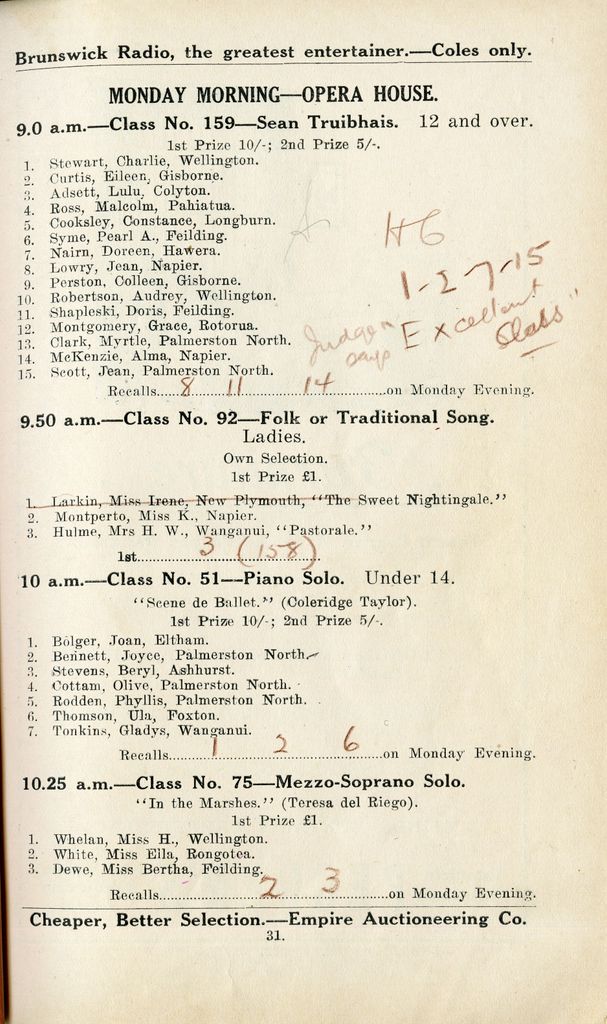 Brunswick Radio, the greatest entertainer.—Coles only.
MONDAY MORNING—OPERA HOUSE.
9.0 a.m.—Class No. 159—Sean Truibhais. 12 and over.
1st Prize 10/-; 2nd Prize 5/-.
1. Stewart, Charlie, Wellington.
2. Curtis, Eileen, Gisborne.
3. Adsett, Lulu, Colyton.
4. Ross, Malcolm, Pahiatua.
5. Cooksley, Constance, Longburn.
6. Syme, Pearl A., Feilding.
7. Nairn, Doreen, Hawera.
8. Lowry, Jean, Napier.
9. Perston, Colleen, Gisborne.
10. Robertson, Audrey, Wellington.
11. Shapleski, Doris, Feilding.
12. Montgomery, Grace, Rotorua.
13. Clark, Myrtle, Palmerston North.
14. McKenzie, Alma, Napier.
15. Scott, Jean, Palmerston North.
H C
1-2-7-15
Judge says "Excellent Class"
Recalls.....8 11 14.....on Monday Evening.
9.50 a.m.—Class No. 92—Folk or Traditional Song.
Ladies.
Own Selection.
1st Prize £1.
1. Larkin, Miss Irene, New Plymouth, "The Sweet Nightingale."
2. Montperto, Miss K., Napier.
3. Hulme, Mrs H. W., Wanganui, "Pastorale."
1st.....3 (158).....
10 a.m.—Class No. 51—Piano Solo. Under 14.
"Scene de Ballet." (Coleridge Taylor).
1st Prize 10/-; 2nd Prize 5/-.
1. Bolger, Joan, Eltham.
2. Bennett, Joyce, Palmerston North.
3. Stevens, Beryl, Ashhurst.
4. Cottam, Olive, Palmerston North.
5. Rodden, Phyllis, Palmerston North.
6. Thomson, Ula, Foxton.
7. Tonkins, Gladys, Wanganui.
Recalls.....1 2 6.....on Monday Evening.
10.25 a.m.—Class No. 75—Mezzo-Soprano Solo.
"In the Marshes." (Teresa del Riego).
1st Prize £1.
1. Whelan, Miss H., Wellington.
2. White, Miss Ella, Rongotea.
3. Dewe, Miss Bertha, Feilding.
Recalls.....2 3.....on Monday Evening.
Cheaper, Better Selection.—Empire Auctioneering Co.
31.